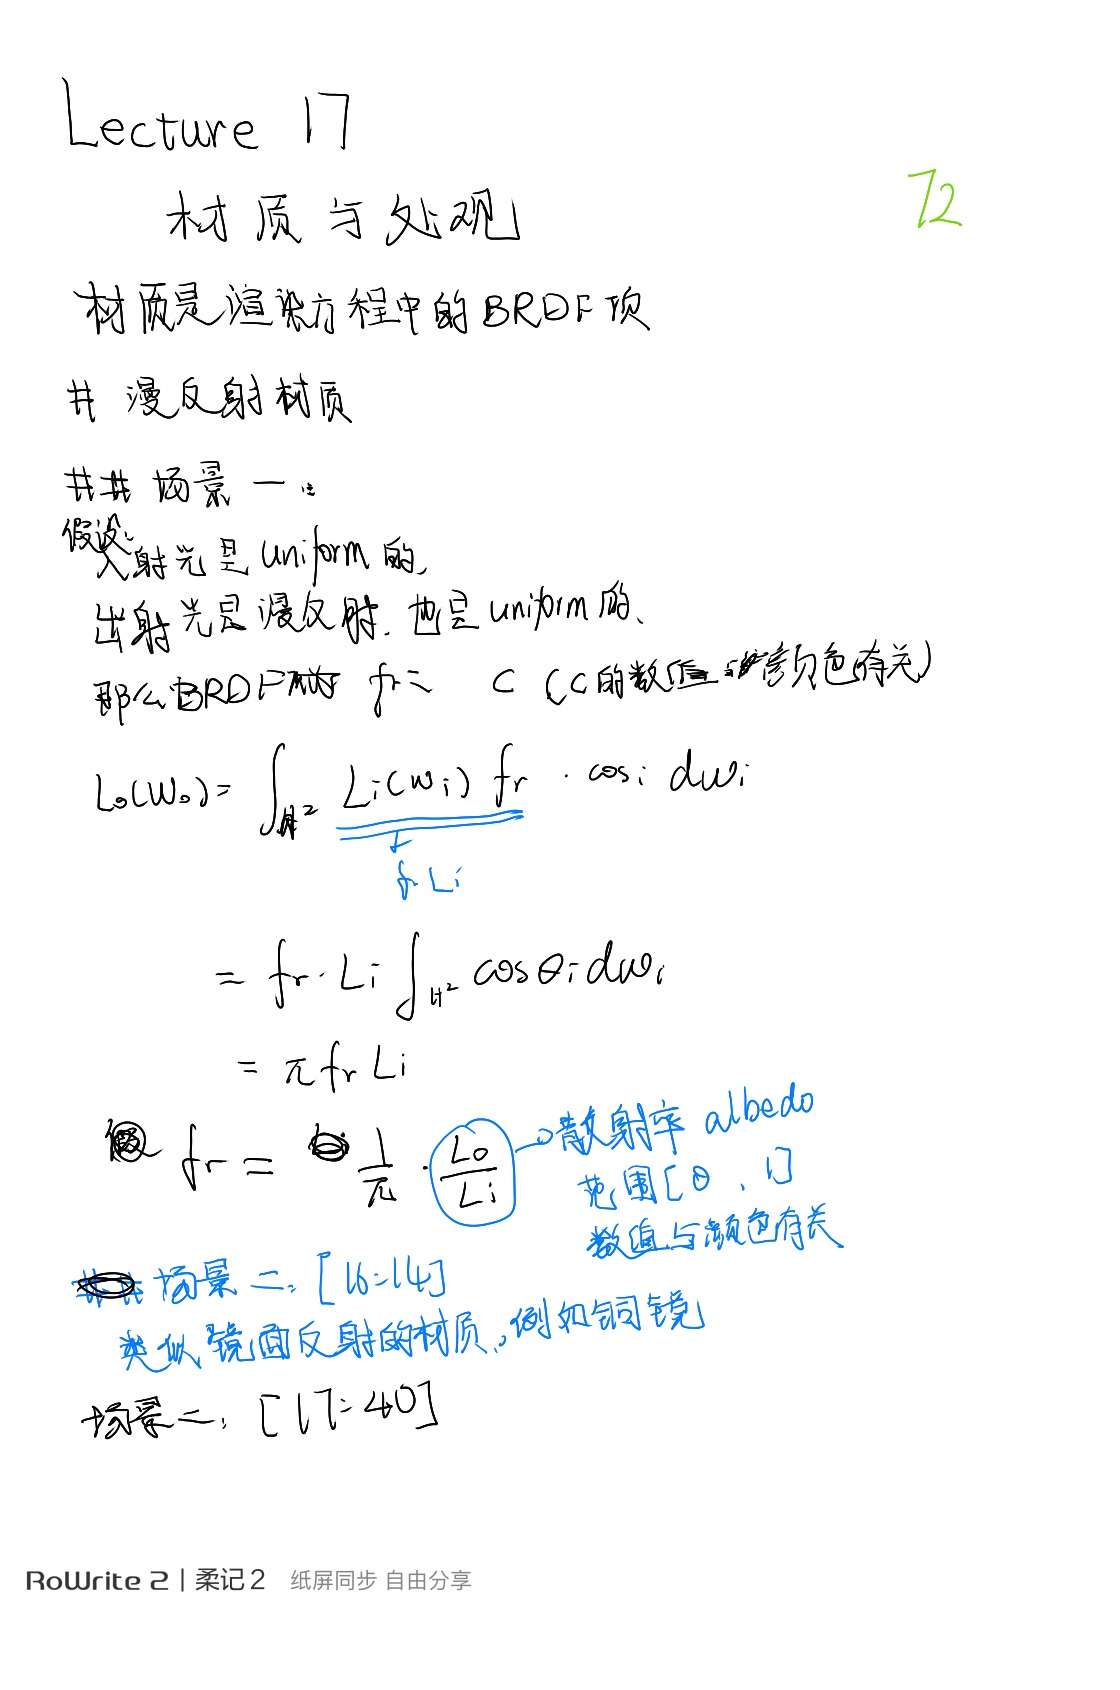 Lecture 17
72
材质与处观
材质是渲染方程中的BRDF项
# 漫反射材质
## 场景一:
假设:
入射光是uniform的,
出射光是漫反射.也是uniform的、
那么BRDF fr = C (C的数值与颜色有关)
Lo(Wo) = ∫H² Li(wi) fr · cosi dwi
fr Li
= fr · Li ∫H² cosθi dwi
= π fr Li
fr = 1/π · Lo/Li
散射率 albedo
范围[0, 1]
数值与颜色有关
场景二: [16:14]
类似镜面反射的材质,例如铜镜
场景二: [17:40]
RoWrite 2 | 柔记2 纸屏同步 自由分享